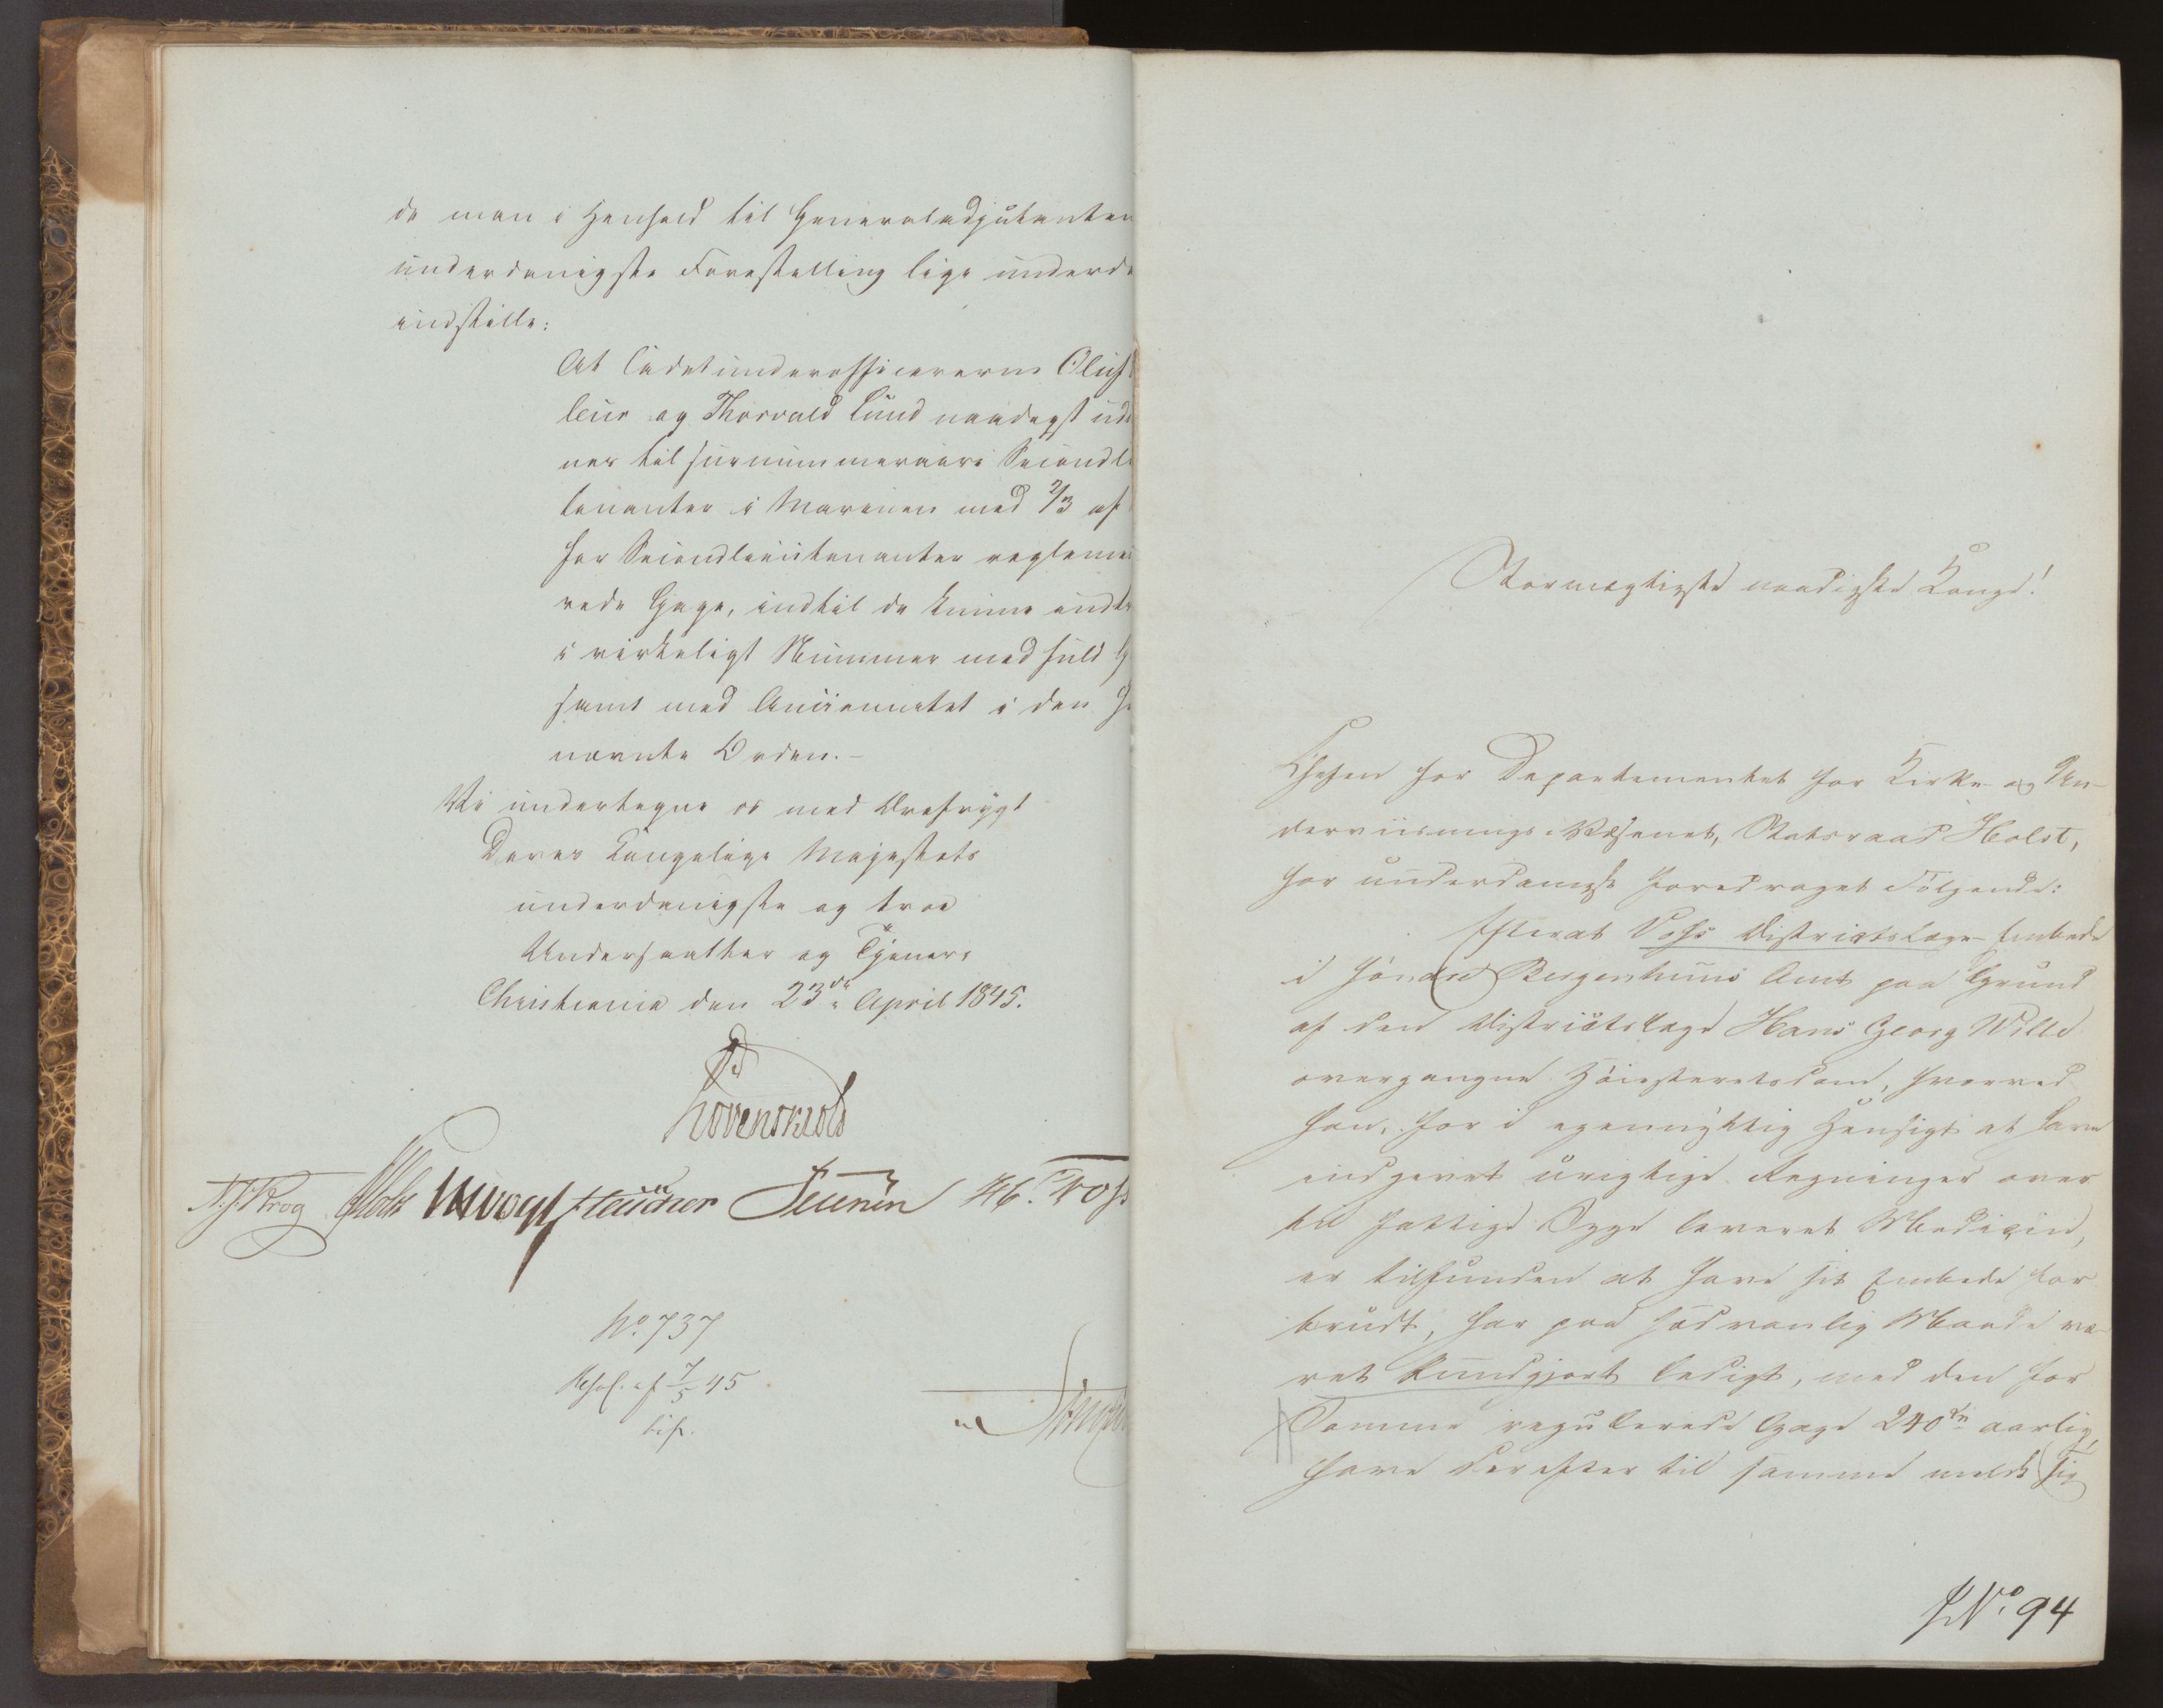 de man i Henhold til Generaladjutanten
underdanigste Forestilling lige underd
indstille:
At Cadetunderofficererne Oluf
leur og Thorvald Lund naadigst ud
nes til surnummeraire Secondl
tenanter i Marinen med 2/3 af
for Secondlieutenanter reglemen
rede Gage, indtil de kunne indt
i virkeligt Nummer med fuld G
samt med Anciennetet i den
nævnte Orden.-
Vi undertegne os med Ærefrygt
Deres Kongelige Majestets
underdanigste og troe
Undersaatter og Tjenere
Christiania den 23de April 1845.
Løvenskiold
N. J. Krog Holst Vogt
No. 737
Resol. af 7/5 45
Stormægtigste naadigste Konge!
Chefen for Departementet for Kirke- og Un-
derviisnings-Væsenet, Statsraad Holst,
har underdanigst foredraget Følgende:
Efterat Voss Districtslæge-Embede
i Søndre Bergenhuus Amt paa Grund
af den Districtslæge Hans Georg Wille
overgangne Høiesteretsdom, hvorved
han, for i egennyttig Hensigt at have
indgivet urigtige Regninger over
til fattige Syge leveret Medicin,
er tilfunden at have sit Embede for-
brudt, har paa sædvanlig Maade væ-
ret kundgjort ledigt, med den for
Samme regulerede Gage 240 aarlig,
have derefter til samme meldt sig
No. 94